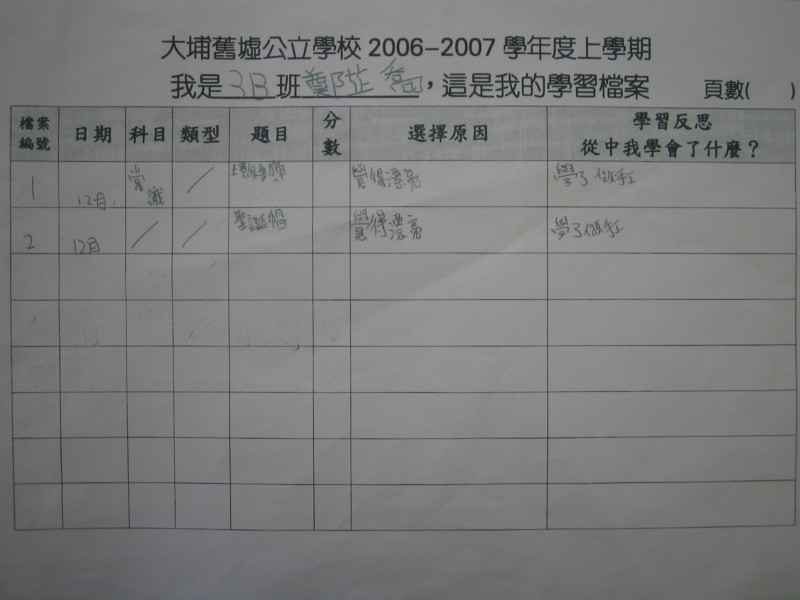 大埔舊墟公立學校 2006-2007 學年度上學期
我是 3B 班鄭芷喬，這是我的學習檔案 頁數( )
檔案編號 日期 科目 類型 題目 分數 選擇原因 學習反思 從中我學會了什麼？
1 12月 常識 / 覺得漂亮 學了做手工
2 12月 / / 聖誕帽 覺得漂亮 學了做手工